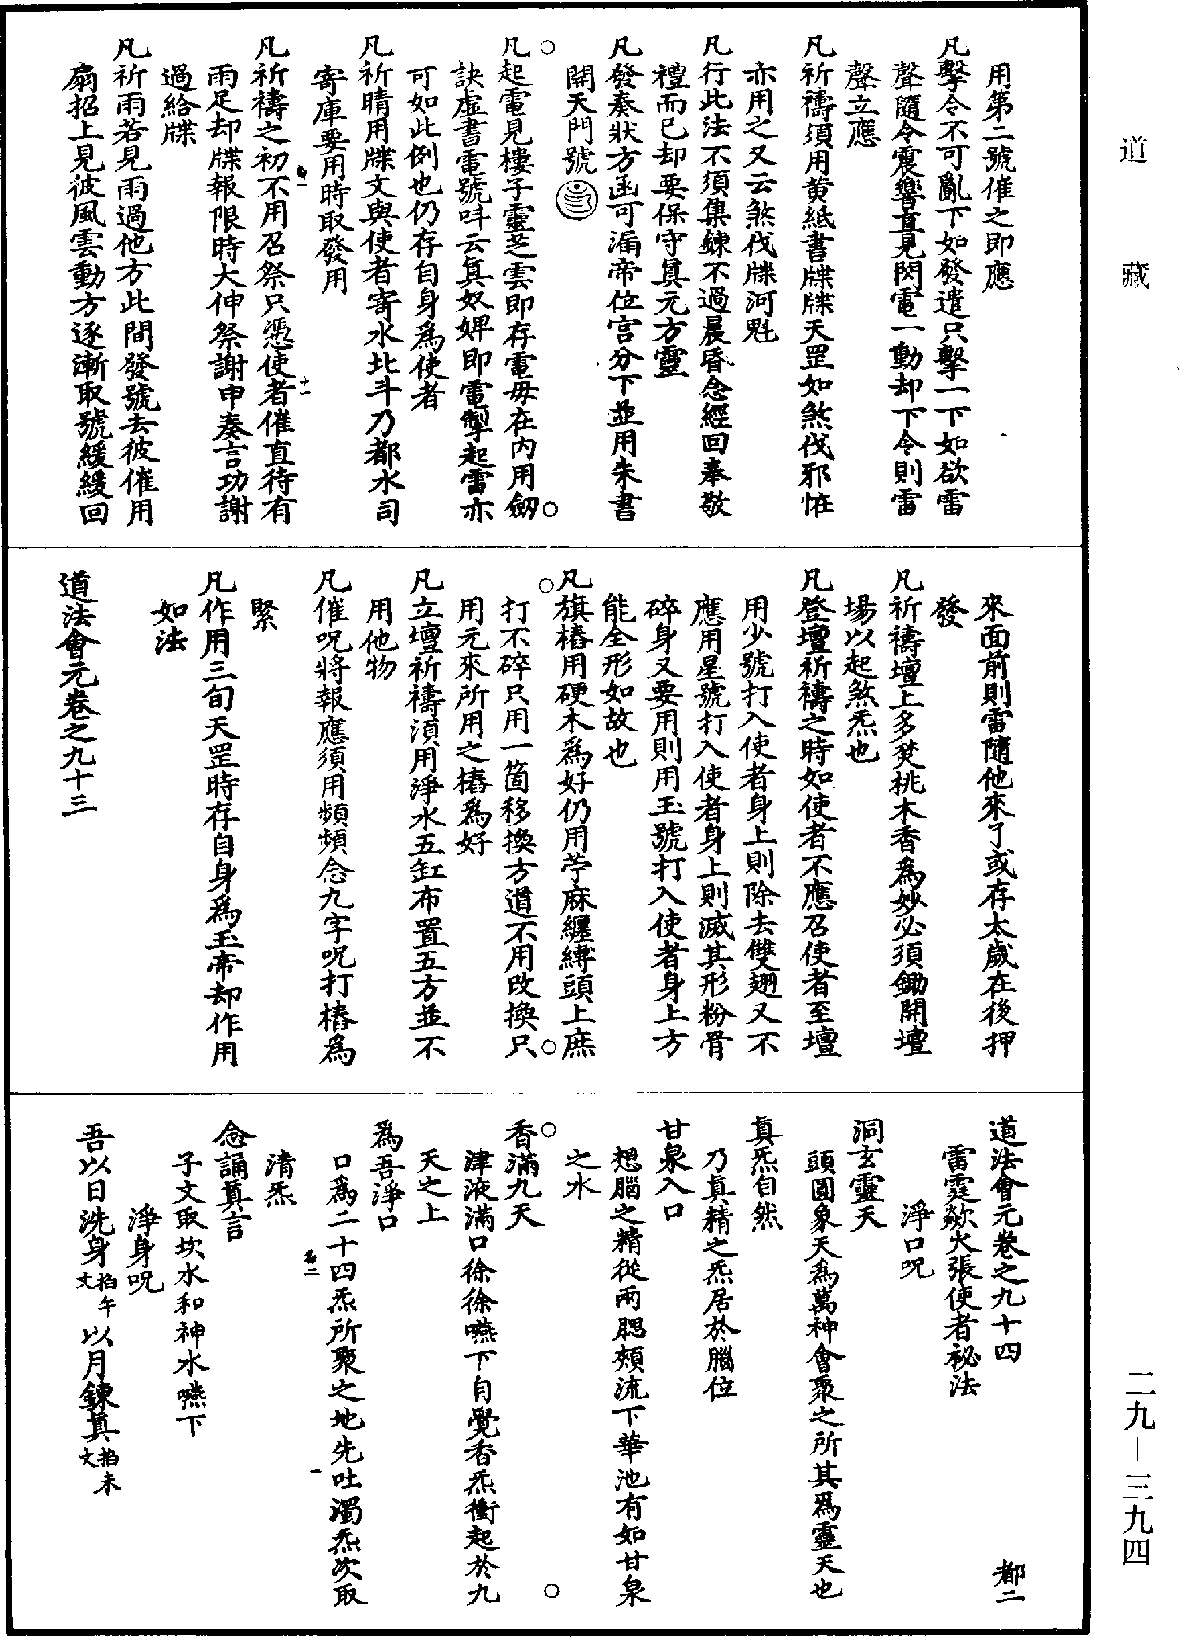 道藏
用第二號催之即應
凡擊令不可亂下如發遣只擊一下如欲雷
聲隨令震響直見閃電一動却下令則雷
聲立應
凡祈禱須用黃紙書牒牒天罡如煞伐邪恠
亦用之又云煞伐牒河魁
凡行此法不須集鍊不過晨昏念經回奉敬
禮而已却要保守眞元方靈
凡發奏狀方函可漏帝位宮分下並用朱書
開天門號
凡起電見樓子靈芝雲即存電母在內用劒
訣虛書電號吽云眞奴婢即電掣起雷亦
可如此例也仍存自身爲使者
凡祈晴用牒文與使者寄水北斗乃都水司
寄庫要用時取發用
凡祈禱之初不用召祭只憑使者催直待有
雨足却牒報限時大伸祭謝申奏言功謝
過給牒
凡祈雨若見雨過他方此間發號去彼催用
扇招上見彼風雲動方逐漸取號緩緩回
來面前則雷隨他來了或存太歲在後押
發
凡祈禱壇上多焚桃木香爲妙必須鋤開壇
場以起煞炁也
凡登壇祈禱之時如使者不應召使者至壇
用少號打入使者身上則除去雙翅又不
應用星號打入使者身上則滅其形粉骨
碎身又要用則用玉號打入使者身上方
能全形如故也
凡旗樁用硬木爲好仍用苧麻纏縛頭上庶
打不碎只用一箇移換方道不用改換只
用元來所用之樁爲好
凡立壇祈禱須用淨水五缸布置五方並不
用他物
凡催呪將報應須用頻頻念九字呪打樁爲
緊
凡作用三旬天罡時存自身爲玉帝却作用
如法
道法會元卷之九十三
道法會元卷之九十四 都二
雷霆欻火張使者祕法
淨口呪
洞玄靈天
頭圓象天爲萬神會聚之所其爲靈天也
眞炁自然
乃眞精之炁居於腦位
甘泉入口
想腦之精從兩腮頰流下華池有如甘泉
之水
香滿九天
津液滿口徐徐嚥下自覺香炁衝起於九
天之上
爲吾淨口
口爲二十四炁所聚之地先吐濁炁次取
清炁
念誦眞言
子文取坎水和神水嚥下
淨身呪
吾以日洗身掐午文以月鍊眞掐未文
二九—三九四